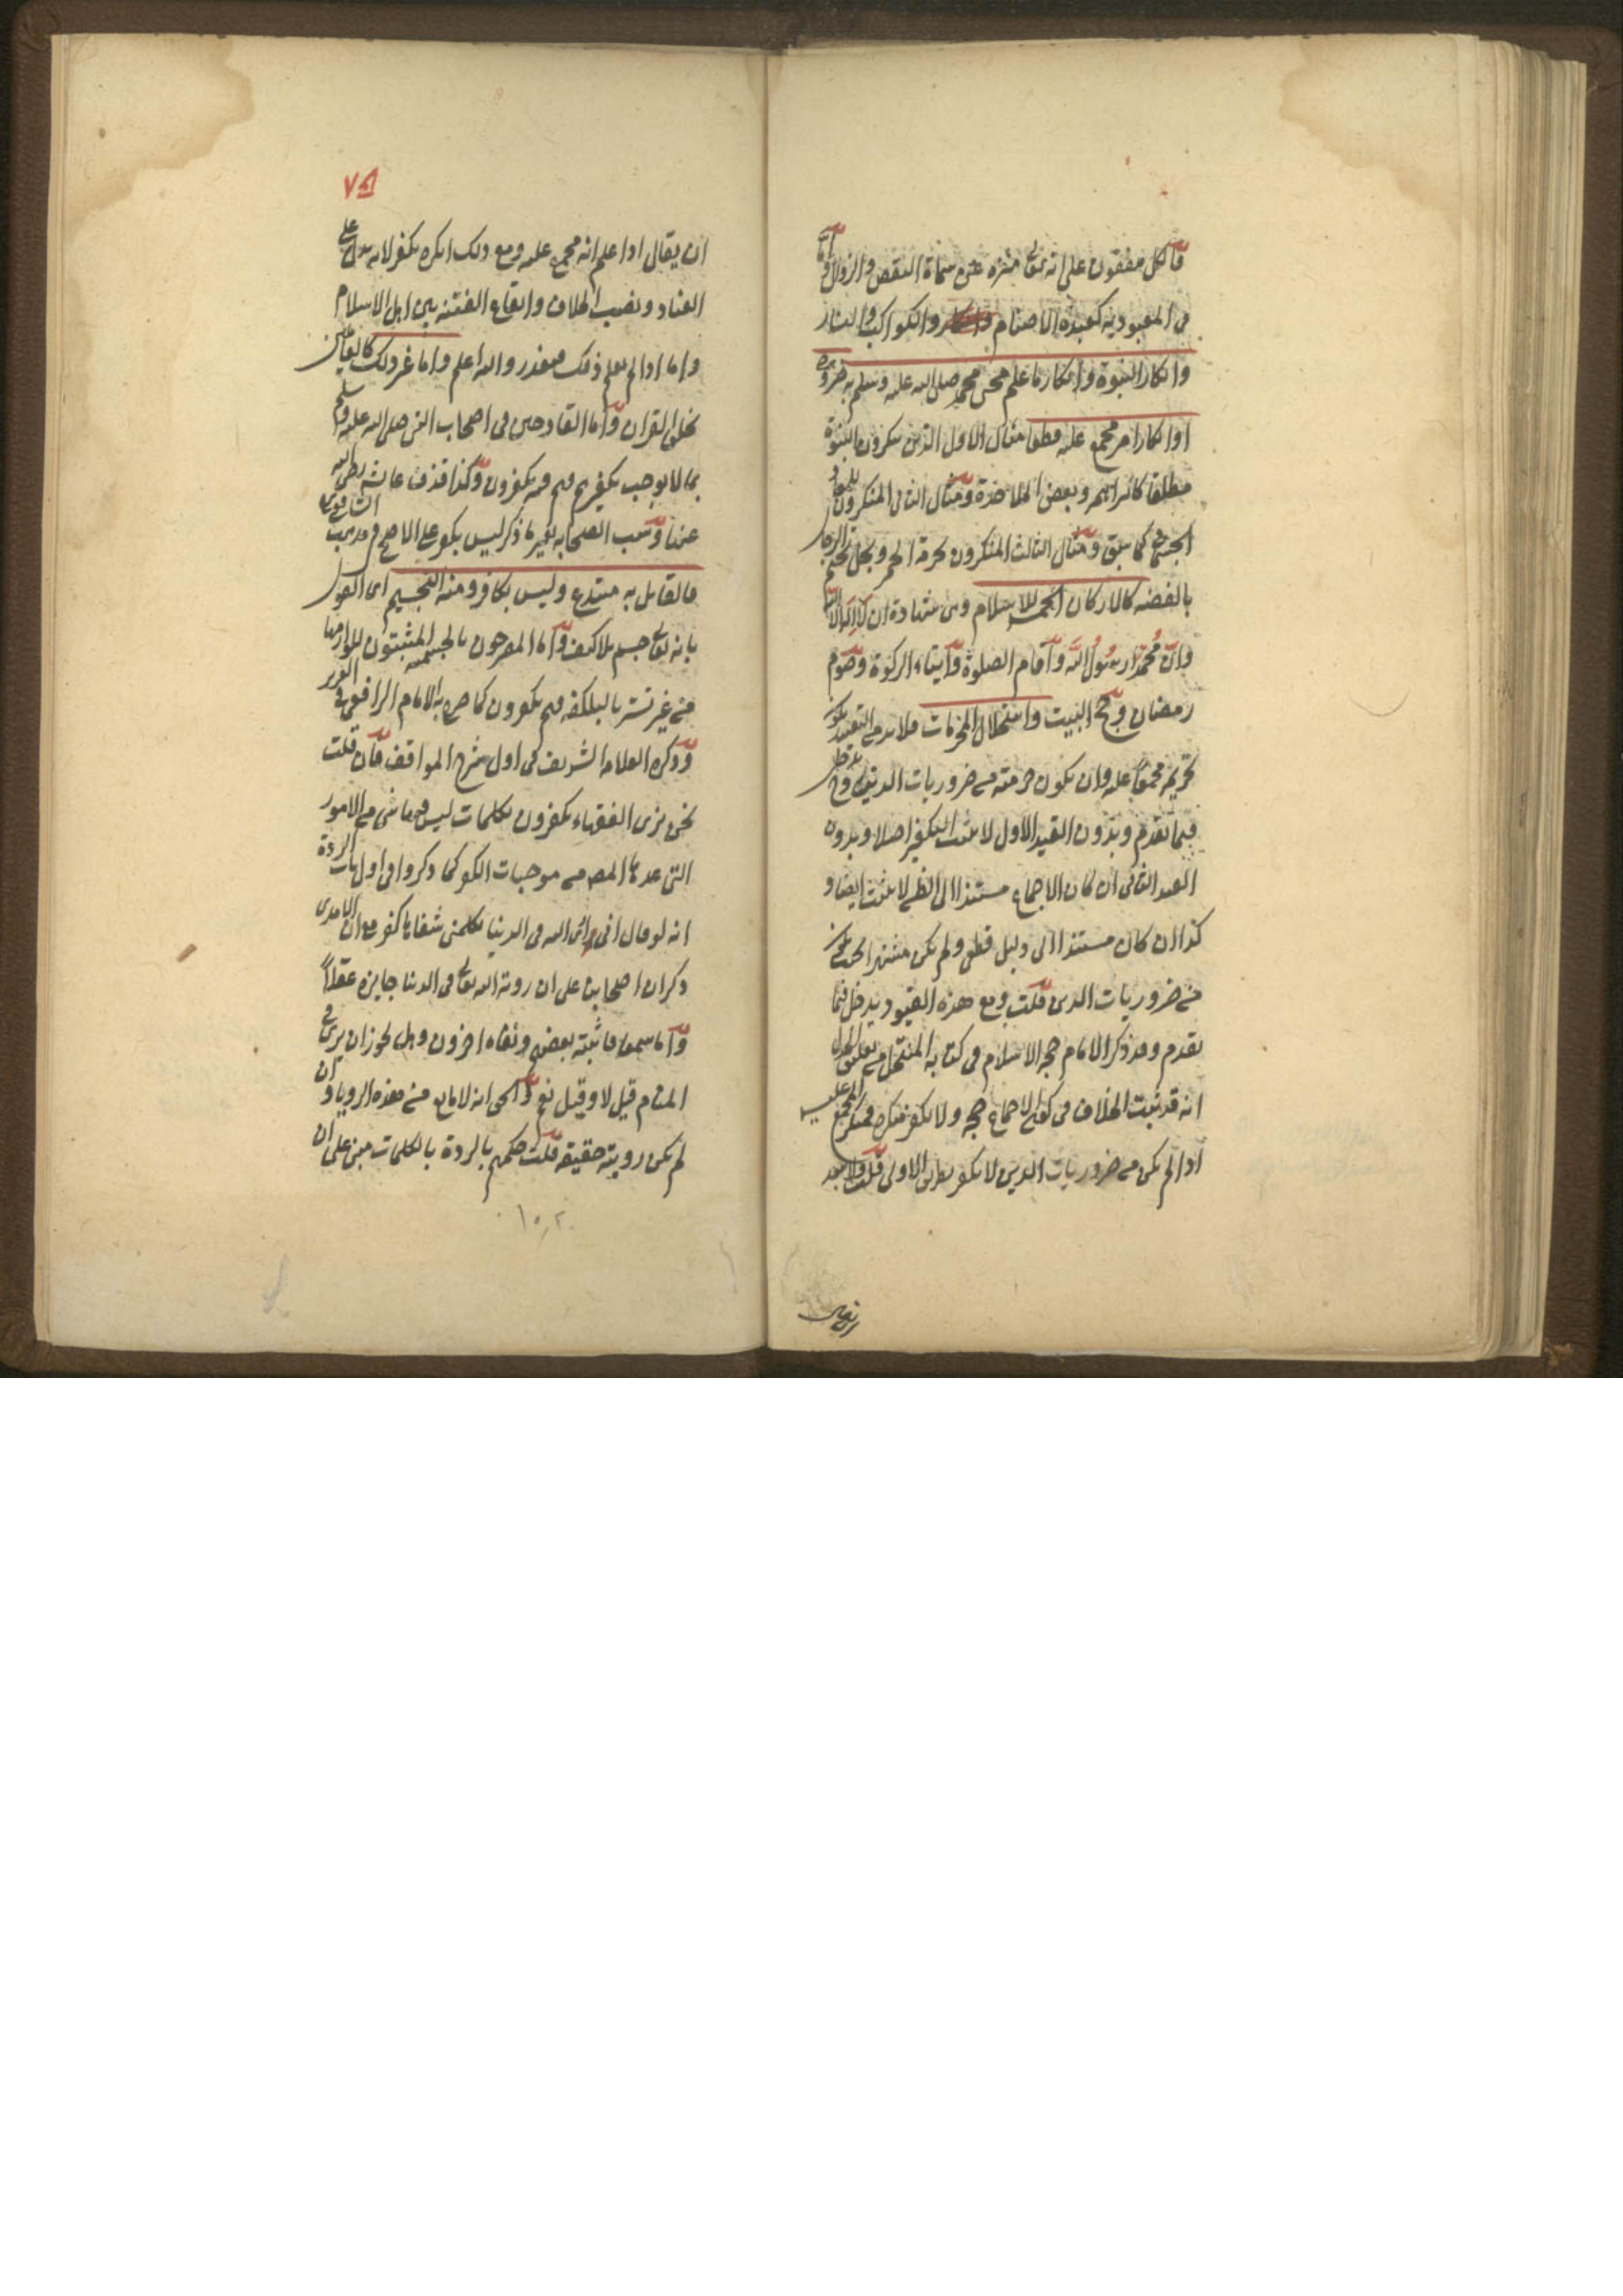 فالكل متفقون على انه تعالى منزه عن سماة النقص والزوال واما
فى المعبودية كعبدة الاصنام والكواكب والنار
وانكار النبوة وانكار ما علم مجى محمد صلى الله عليه وسلم به ضرورة
او انكار امر مجمع عليه قطعا مثال الاول الذين ينكرون النبوة
مطلقا كالبراهمه وبعض الملاحدة ومثال الثانى المنكرون للمعاد
الجسمانى كما سبق ومثال الثالث المنكرون لحرمة الخمر
بالفضه كالاركان الخمسه للاسلام وهى شهادة ان لا اله الا الله
وان محمدا رسول الله واقام الصلوة وايتاء الزكوة وصوم
رمضان وحج البيت واستحلال المحرمات فلا بد من التقييد بكون
تحريمه مجمعا عليه وان يكون حرمته من ضروريات الدين وح يدخل
فيما تقدم وبدون القيد الاول لا يثبت التكفير اصلا وبدون
القيد الثانى ان كان الاجماع مستندا الى الظن لا يثبت ايضا و
كذا ان كان مستندا الى دليل قطعى ولم يكن مشتهرا
من ضروريات الدين قلت ومع هذه القيود يدخل فيما
تقدم وقد ذكر الامام حجه الاسلام فى كتابه المنتحل من تعليق الجدل
انه قد ثبت الخلاف فى كون الاجماع حجه ولا يكفر منكره فمنكر المجمع عليه
اذا لم يكن من ضروريات الدين لا يكفر بطريق الاولى قلت ولا يبعد
ان يقال
٧٥
ان يقال اذا علم انه مجمع عليه ومع ذلك انكره يكفر لانه يدل على
العناد ونصب الخلاف وايقاع الفتنه بين اهل الاسلام
واما اذا لم يعلم ذلك فمعذور والله اعلم واما غير ذلك كالقائلين
بخلق القران واما القادحين فى اصحاب النبى صلى الله عليه وسلم
بما لا يوجب تكفيرهم فهم يكفرون وكذا قذف عائشه رضى الله
عنها وسب الصحابه بغير ما ذكر ليس بكفر على الاصح فى مذهب الشافعى
فالقايل به مبتدع وليس بكافر ومنه التجسيم اى القول
بانه تعالى جسم بلا كيف واما المصرحون بالجسميه المثبتون للوازمها
من غير تستر بالبلكفه فهم يكفرون كما صرح به الامام الرافعى فى العزيز
وذكره العلامه الشريف فى اول شرح المواقف فان قلت
نحن نرى الفقهاء يكفرون بكلمات ليس فيها شى من الامور
التى عدها المصـ من موجبات الكفر كما ذكروا فى اول باب الردة
انه لو قال انى ارى الله فى الدنيا يكلمنى شفاها كفر مع ان الامدى
ذكر ان اصحابنا على ان رويه الله تعالى فى الدنيا جايزه عقلا
واما سمعا فاثبته بعضهم ونفاه اخرون وهل يجوز ان يرى فى
المنام قيل لا وقيل نعم والحق انه لا مانع من هذه الرويا وان
لم يكن رويته حقيقه قلت حكمهم بالردة بالكلمات مبنى على ان